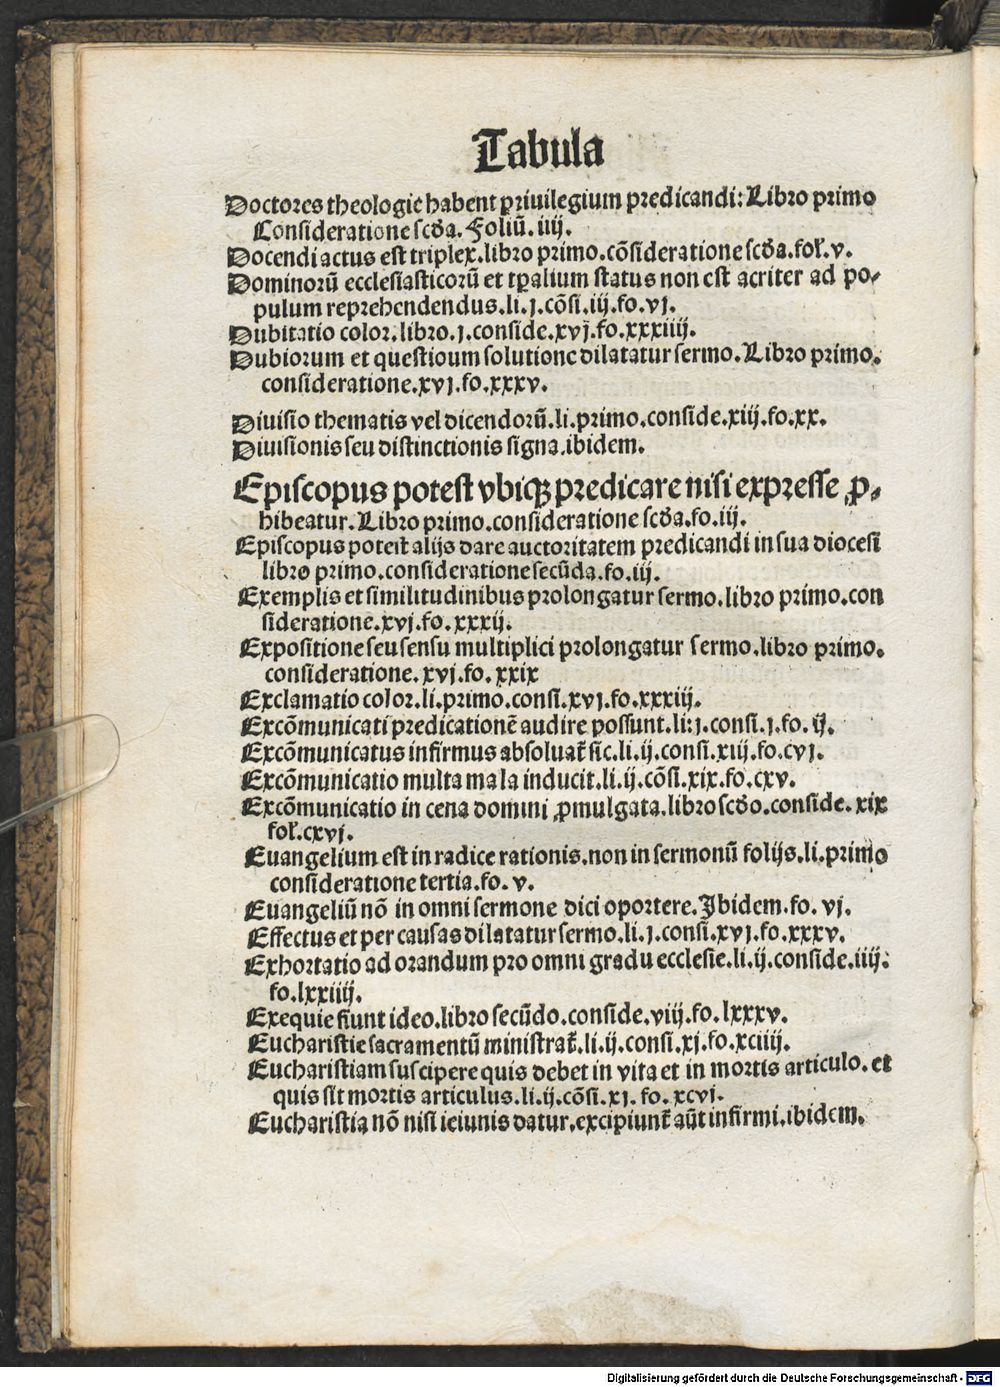 Tabula
Doctores theologie habent priuilegium predicandi: Libro primo
Consideratione scďa. Foliū. iiij.
Docendi actus est triplex. libro primo. cōsideratione scďa. foł. v.
Dominorū ecclesiasticorū et tꝑalium status non est acriter ad po⸗
pulum reprehendendus. li. j. cōsi. iij. fo. vj.
Dubitatio color. libro. j. conside. xvj. fo. xxxiiij.
Dubiorum et questioum solutione dilatatur sermo. Libro primo.
consideratione. xvj. fo. xxxv.
Diuisio thematis vel dicendorū. li. primo. conside. xiij. fo. xx.
Diuisionis seu distinctionis signa. ibidem.
Episcopus potest vbiqꝫ predicare nisi expresse ꝓ⸗
hibeatur. Libro primo. consideratione scďa. fo. iij.
Episcopus potest alijs dare auctoritatem predicandi in sua diocesi
libro primo. consideratione secūda. fo. iij.
Exemplis et similitudinibus prolongatur sermo. libro primo. con
sideratione. xvj. fo. xxxij.
Expositione seu sensu multiplici prolongatur sermo. libro primo.
consideratione. xvj. fo. xxix
Exclamatio color. li. primo. consi. xvj. fo. xxxiij.
Excōmunicati predicationē audire possunt. li: j. consi. j. fo. ij.
Excōmunicatus infirmus absoluat᷑ sic. li. ij. consi. xiij. fo. cvj.
Excōmunicatio multa mala inducit. li. ij. cōsi. xix. fo. cxv.
Excōmunicatio in cena domini ꝓmulgata. libro scďo. conside. xix
foł. cxvj.
Euangelium est in radice rationis. non in sermonū folijs. li. primo
consideratione tertia. fo. v.
Euangeliū nō in omni sermone dici oportere. Ibidem. fo. vj.
Effectus et per causas dilatatur sermo. li. j. consi. xvj. fo. xxxv.
Exhortatio ad orandum pro omni gradu ecclesie. li. ij. conside. iiij.
fo. lxxiiij.
Exequie fiunt ideo. libro secūdo. conside. viij. fo. lxxxv.
Eucharistie sacramentū ministrat᷑. li. ij. consi. xj. fo. xciiij.
Eucharistiam suscipere quis debet in vita et in mortis articulo. et
quis sit mortis articulus. li. ij. cōsi. xj. fo. xcvj.
Eucharistia nō nisi ieiunis datur. excipiunt᷑ aūt infirmi. ibidem.
Digitalisierung gefördert durch die Deutsche Forschungsgemeinschaft - DFG